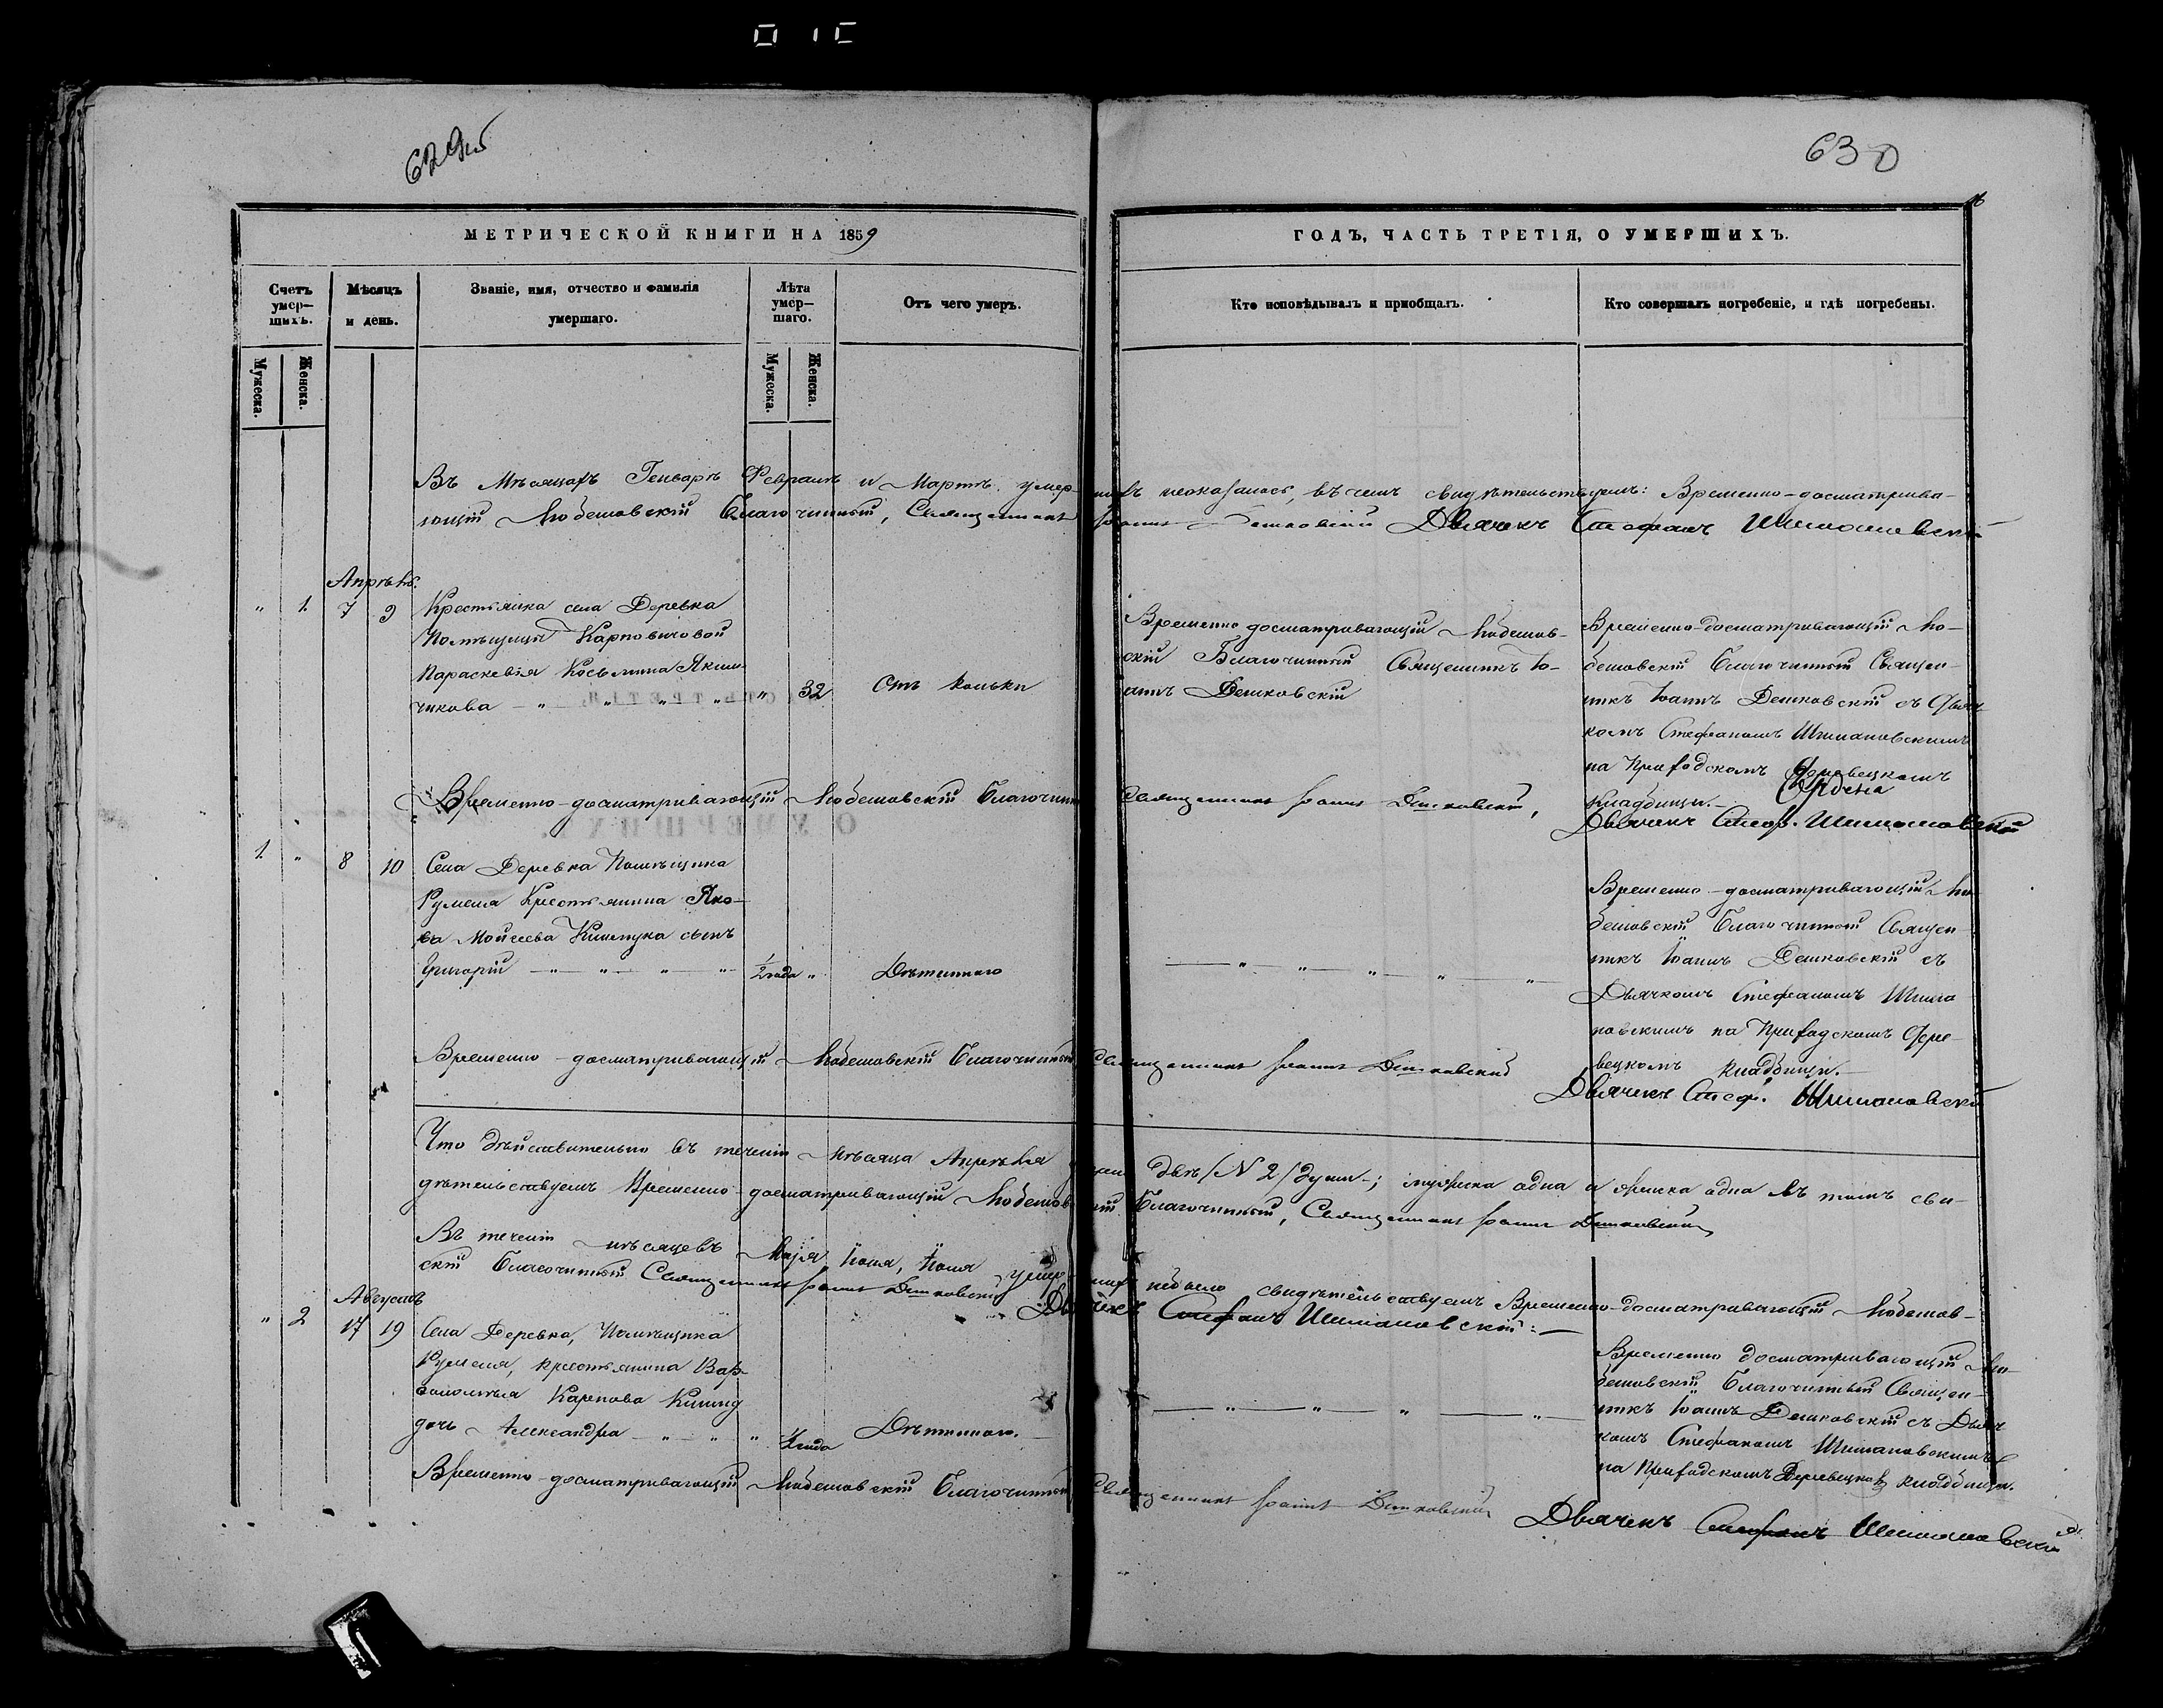 629об
630
МЕТРИЧЕСКОЙ КНИГИ НА 1859
ГОДЪ, ЧАСТЬ ТРЕТІЯ, О УМЕРШИХЪ.
Счетъ умер-
шихъ.
Мѣсяцъ
и день.
Званіе, имя, отчество и фамилія
умершаго.
Лѣта
умер-
шаго.
Отъ чего умеръ.
Кто исповѣдывалъ и пріобщалъ.
Кто совершалъ погребеніе, и гдѣ погребены.
Мужеска.
Женска.
Мужеска.
Женска.
Въ Мѣсяцахъ Генварѣ Февралѣ и Мартѣ умер-шихъ неоказалось, въ чемъ свидѣтельствуемъ: Временно-досматрива-
ющій Любешовскій Благочинный, Священникъ Іоаннъ Дешковскій Дьячекъ Стефанъ Шимановскій
Апрѣль.
" 1. 7 9 Крестьянка села Деревка
Помѣщицы Карповичовой
Параскевія Косьмина Яким-
чикова " " " " " 32 Отъ кольки
Временно досматривающій Любешов-
скій Благочинный Священникъ Іо-
аннъ Дешковскій
Временно-досматривающій Лю-
бешовскій Благочинный Священ-
никъ Іоаннъ Дешковскій съ Дьяч-
комъ Стефаномъ Шимановскимъ
на Приходскомъ Деревецкомъ
кладбищѣ.
Временно-досматривающій Любешовскій Благочинный Священникъ Іоаннъ Дешковскій,
Дьячекъ Стеф. Шимановскій
1. " 8 10 Села Деревка Помѣщика
Румеля Крестьянина Яко-
ва Мойсеева сынъ
Григорій " " " " 1/2 года " Дѣтинного
" " " " "
Временно-досматривающій Лю-
бешовскій Благочинный Священ-
никъ Іоаннъ Дешковскій съ
Дьячкомъ Стефаномъ Шима
новскимъ на Приходскомъ Дере-
вецкомъ кладбищѣ.
Временно-досматривающій Любешовскій Благочинный Священникъ Іоаннъ Дешковскій
Дьячекъ Стеф. Шимановскій
Что дѣйствительно въ теченіи мѣсяца Апрѣля двѣ /N 2/ души; мужеска одна и женска одна въ томъ сви-
дѣтельствуемъ Временно-досматривающій Любешовскій Благочинный, Священникъ Іоаннъ Дешковскій
Въ теченіи мѣсяцевъ Маія, Іюня, Іюля умер-шихъ небыло свидѣтельствуемъ Временно-досматривающій Любешов-
скій Благочинный Священникъ Іоаннъ Дешковскій Дьячекъ Стефанъ Шимановскій:
Августъ
" 2 17 19 Села Деревка, Помѣщика
Румеля, крестьянина Вар-
ѳоломея Карпова
дочь Александра " " " 1/2 года Дѣтинного.
" " " "
Временно досматривающій Лю-
бешовскій Благочинный Священ-
никъ Іоаннъ Дешковскій съ Дьяч
комъ Стефаномъ Шимановскимъ
на Приходскомъ Деревецком кладбищѣ.
Временно-досматривающій Любешовскій Благочинный Священникъ Іоаннъ Дешковскій
Дьячекъ Стефанъ Шимановскій